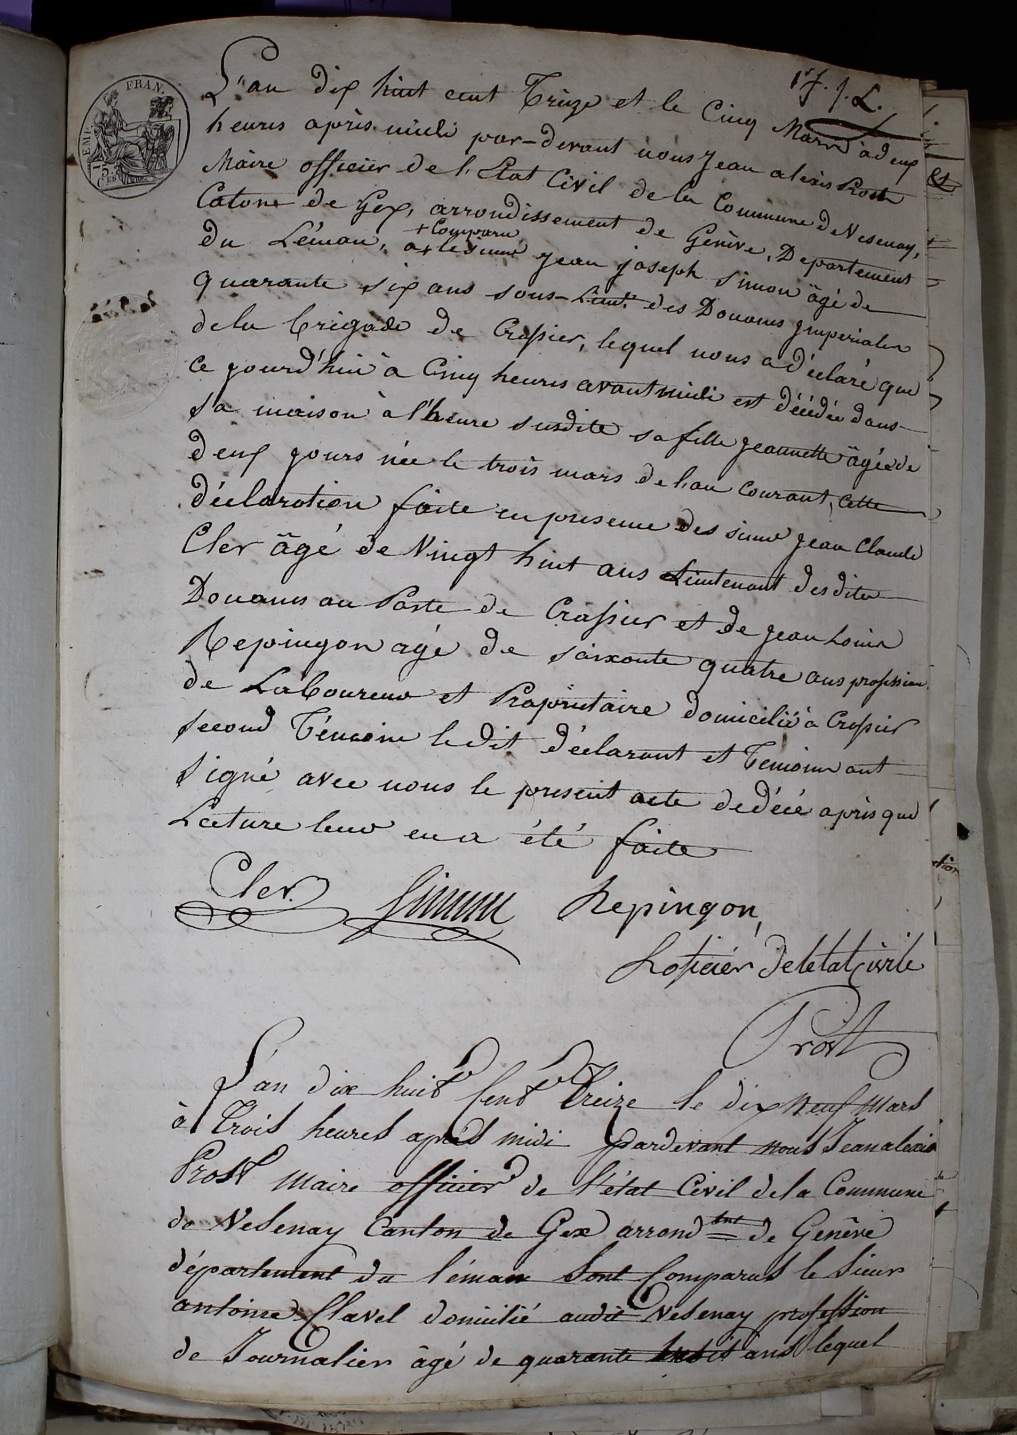 17. f. L.
EMP. FRAN.
L'an dix huit cent Treize et le Cinq Mars à deux
heures après midi par-devant nous Jean alexis Prost
Maire officier de l'Etat Civil de la Commune de Vesenay,
Catone de Gex, arrondissement de Genève, Departement
+ Comparu
du Léman, a + le sieur Jean joseph simon âgé de
quarante six ans sous-Lieut. des Douanes jmperiales
de la brigade de Crassier, lequel nous a déclaré que
ce jourd'hui à Cinq heures avant midi est décédée dans
sa maison à l'heure susdite sa fille jeannette âgée de
deux jours née le trois mars de l'an Courant, Cette
déclaration faite en presence des sieurs Jean Claude
Cler âgé de Vingt huit ans Lieutenant des dites
Douanes au Poste de Crassier et de Jean Louis
Repingon agé de soixante quatre ans profession
de Laboureur et Propriétaire domicilié à Crassier
second Témoin le dit déclarant et Temoins ont
signé avec nous le présent acte de décé après que
Lecture leur en a été faite
Cler. Simon Repingon,
Loficiér de letat Civile
Prost
L'an dix huit Cent Treize le dix neuf Mars
à Trois heures après midi pardevant nous Jean alexis
Prost Maire officier de l'état Civil de la Commune
de Vesenay Canton de Gex arrond.tnt de Genève
département du léman sont Comparus le sieur
antoine Clavel domicilié audit Vesenay profession
de Journalier âgé de quarante ans lequel